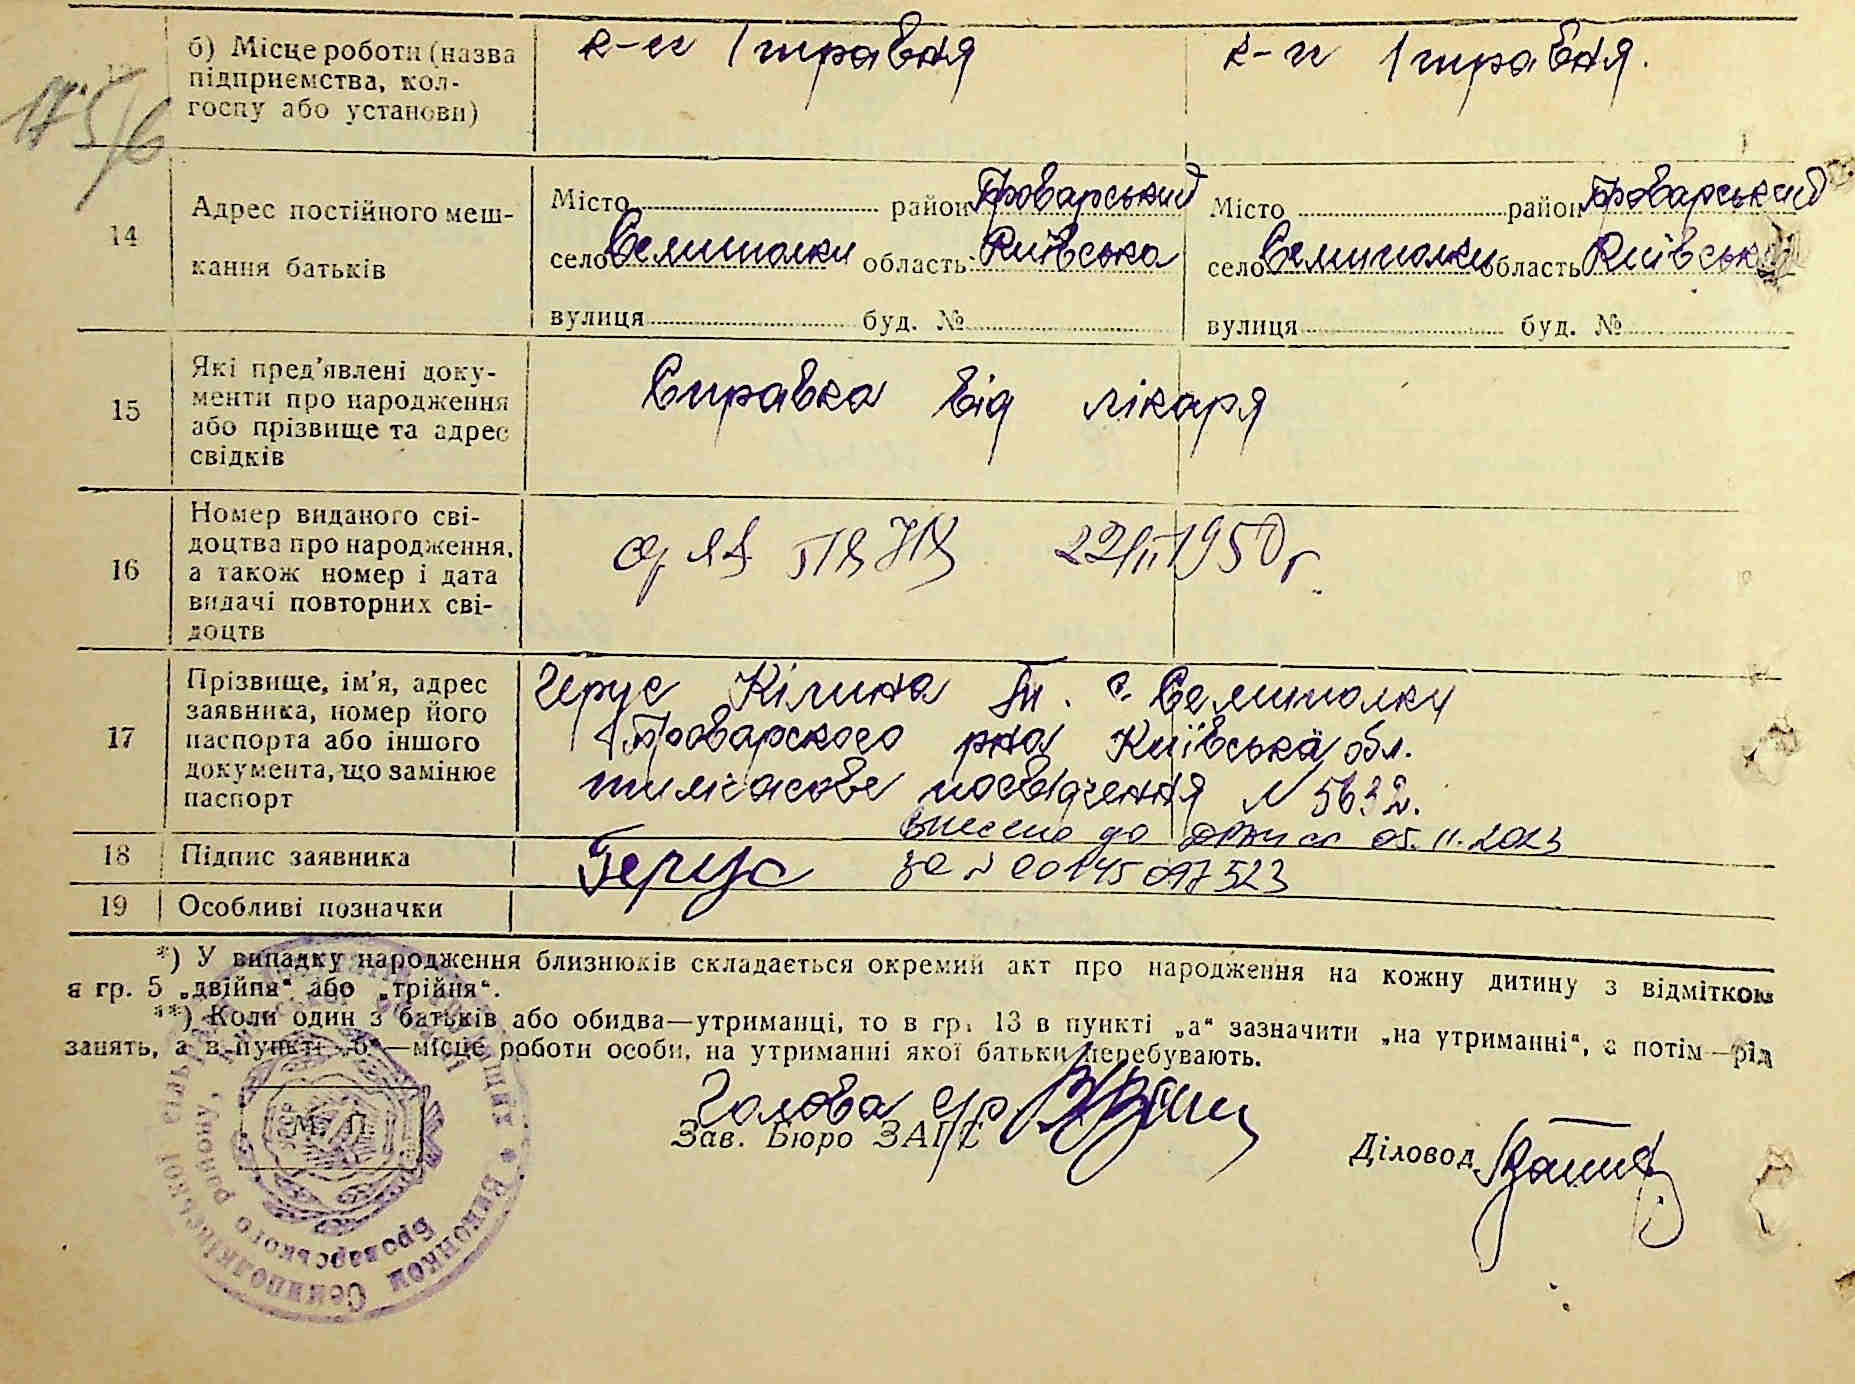 175/6
б) Місце роботи (назва
підприємства, кол-
госпу або установи)
к-п 1 травня
к-п 1 травня.
14
Адрес постійного меш-
кання батьків
Місто район Броварський
село Семиполки область Київська
вулиця буд. №
Місто район Броварський
село Семиполки область Київськ
вулиця буд. №
15
Які пред'явлені доку-
менти про народження
або прізвище та адрес
свідків
Справка від лікаря
16
Номер виданого сві-
доцтва про народження,
а також номер і дата
видачі повторних сві-
доцтв
22/II 1950 г.
17
Прізвище, ім'я, адрес
заявника, номер його
паспорта або іншого
документа, що замінює
паспорт
Герус Кілина с. Семиполки
Броварского рна Київська обл.
тимчасове посвідчення N 5632.
18
Підпис заявника
Герус
внесено до ДРАЦС 05.11.2023
за N 00145017523
19
Особливі позначки
*) У випадку народження близнюків складається окремий акт про народження на кожну дитину з відміткою
в гр. 5 „двійня“ або „трійня“.
**) Коли один з батьків або обидва—утриманці, то в гр. 13 в пункті „а“ зазначити „на утриманні“, а потім—рід
занять, а в пункті „б“—місце роботи особи, на утриманні якої батьки перебувають.
М. П.
Виконком Семиполківської сільр
Броварського району,
Голова с/р
Зав. Бюро ЗАГС
Діловод